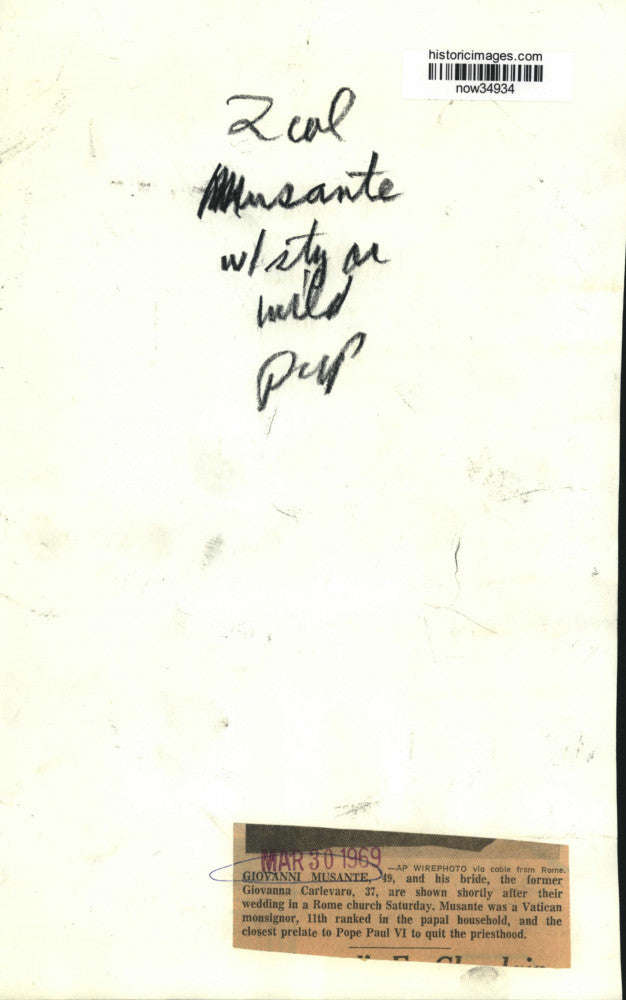 historicimages.com
now34934
2 col
Musante
w/ sty on
wild
pup
MAR 30 1969
—AP WIREPHOTO via cable from Rome.
GIOVANNI MUSANTE, 49, and his bride, the former
Giovanna Carlevaro, 37, are shown shortly after their
wedding in a Rome church Saturday. Musante was a Vatican
monsignor, 11th ranked in the papal household, and the
closest prelate to Pope Paul VI to quit the priesthood.